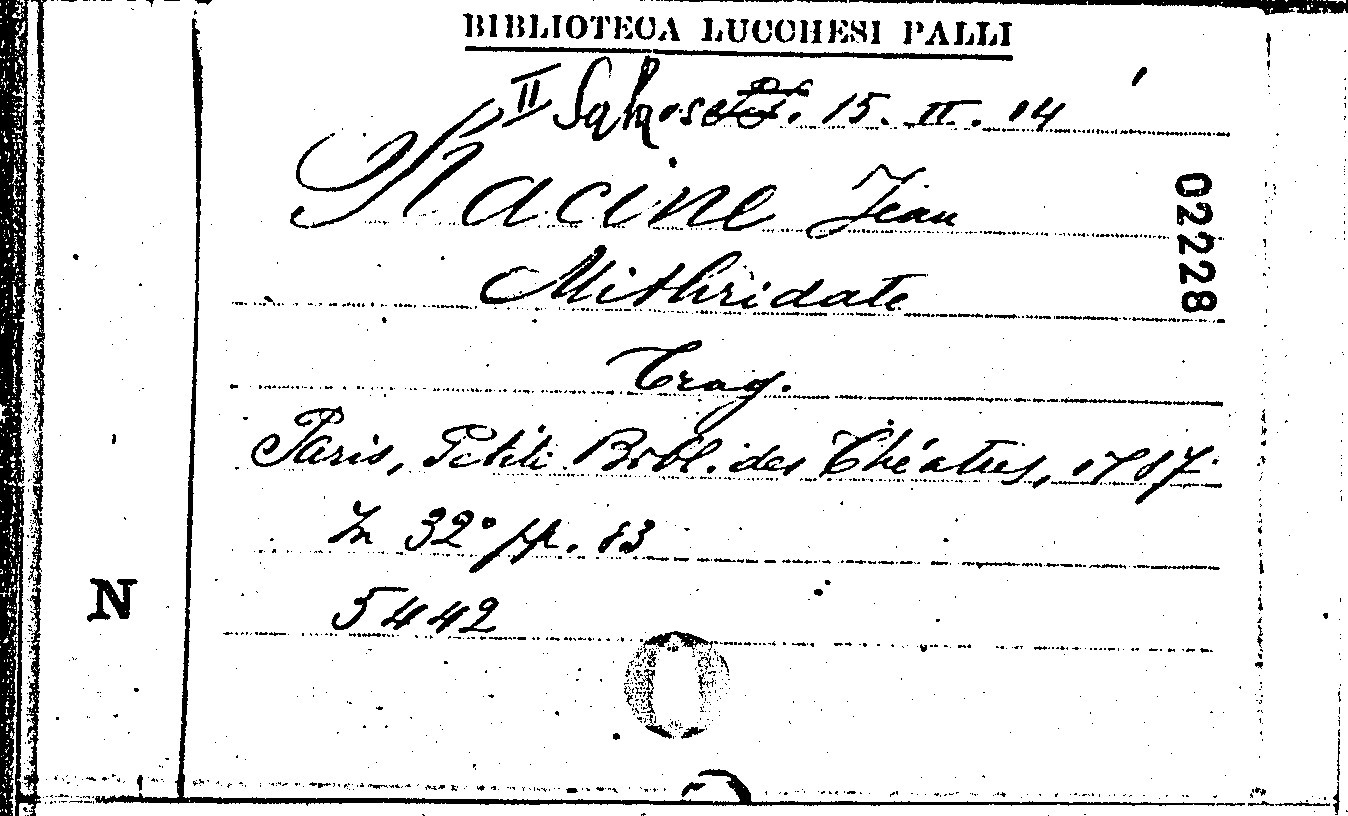 BIBLIOTECA LUCCHESI PALLI
II 15. II. 14
Racine Jean
02228
Mithridate
Trag.
Paris, Petite Bibl. des Théatres, 1787.
In 32° pp. 83
N
5442